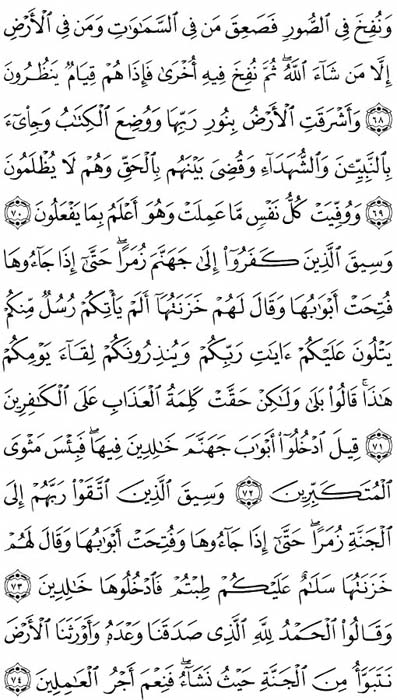 وَنُفِخَ فِي ٱلصُّورِ فَصَعِقَ مَن فِي ٱلسَّمَٰوَٰتِ وَمَن فِي ٱلْأَرْضِ
إِلَّا مَن شَآءَ ٱللَّهُ ۖ ثُمَّ نُفِخَ فِيهِ أُخْرَىٰ فَإِذَا هُمْ قِيَامٌ يَنظُرُونَ
٦٨ وَأَشْرَقَتِ ٱلْأَرْضُ بِنُورِ رَبِّهَا وَوُضِعَ ٱلْكِتَٰبُ وَجِا۟ىٓءَ
بِٱلنَّبِيِّۦنَ وَٱلشُّهَدَآءِ وَقُضِيَ بَيْنَهُم بِٱلْحَقِّ وَهُمْ لَا يُظْلَمُونَ
٦٩ وَوُفِّيَتْ كُلُّ نَفْسٍ مَّا عَمِلَتْ وَهُوَ أَعْلَمُ بِمَا يَفْعَلُونَ ٧٠
وَسِيقَ ٱلَّذِينَ كَفَرُوٓا۟ إِلَىٰ جَهَنَّمَ زُمَرًا ۖ حَتَّىٰٓ إِذَا جَآءُوهَا
فُتِحَتْ أَبْوَٰبُهَا وَقَالَ لَهُمْ خَزَنَتُهَآ أَلَمْ يَأْتِكُمْ رُسُلٌ مِّنكُمْ
يَتْلُونَ عَلَيْكُمْ ءَايَٰتِ رَبِّكُمْ وَيُنذِرُونَكُمْ لِقَآءَ يَوْمِكُمْ
هَٰذَا ۚ قَالُوا۟ بَلَىٰ وَلَٰكِنْ حَقَّتْ كَلِمَةُ ٱلْعَذَابِ عَلَى ٱلْكَٰفِرِينَ
٧١ قِيلَ ٱدْخُلُوٓا۟ أَبْوَٰبَ جَهَنَّمَ خَٰلِدِينَ فِيهَا ۖ فَبِئْسَ مَثْوَى
ٱلْمُتَكَبِّرِينَ ٧٢ وَسِيقَ ٱلَّذِينَ ٱتَّقَوْا۟ رَبَّهُمْ إِلَى
ٱلْجَنَّةِ زُمَرًا ۖ حَتَّىٰٓ إِذَا جَآءُوهَا وَفُتِحَتْ أَبْوَٰبُهَا وَقَالَ لَهُمْ
خَزَنَتُهَا سَلَٰمٌ عَلَيْكُمْ طِبْتُمْ فَٱدْخُلُوهَا خَٰلِدِينَ ٧٣
وَقَالُوا۟ ٱلْحَمْدُ لِلَّهِ ٱلَّذِي صَدَقَنَا وَعْدَهُۥ وَأَوْرَثَنَا ٱلْأَرْضَ
نَتَبَوَّأُ مِنَ ٱلْجَنَّةِ حَيْثُ نَشَآءُ ۖ فَنِعْمَ أَجْرُ ٱلْعَٰمِلِينَ ٧٤